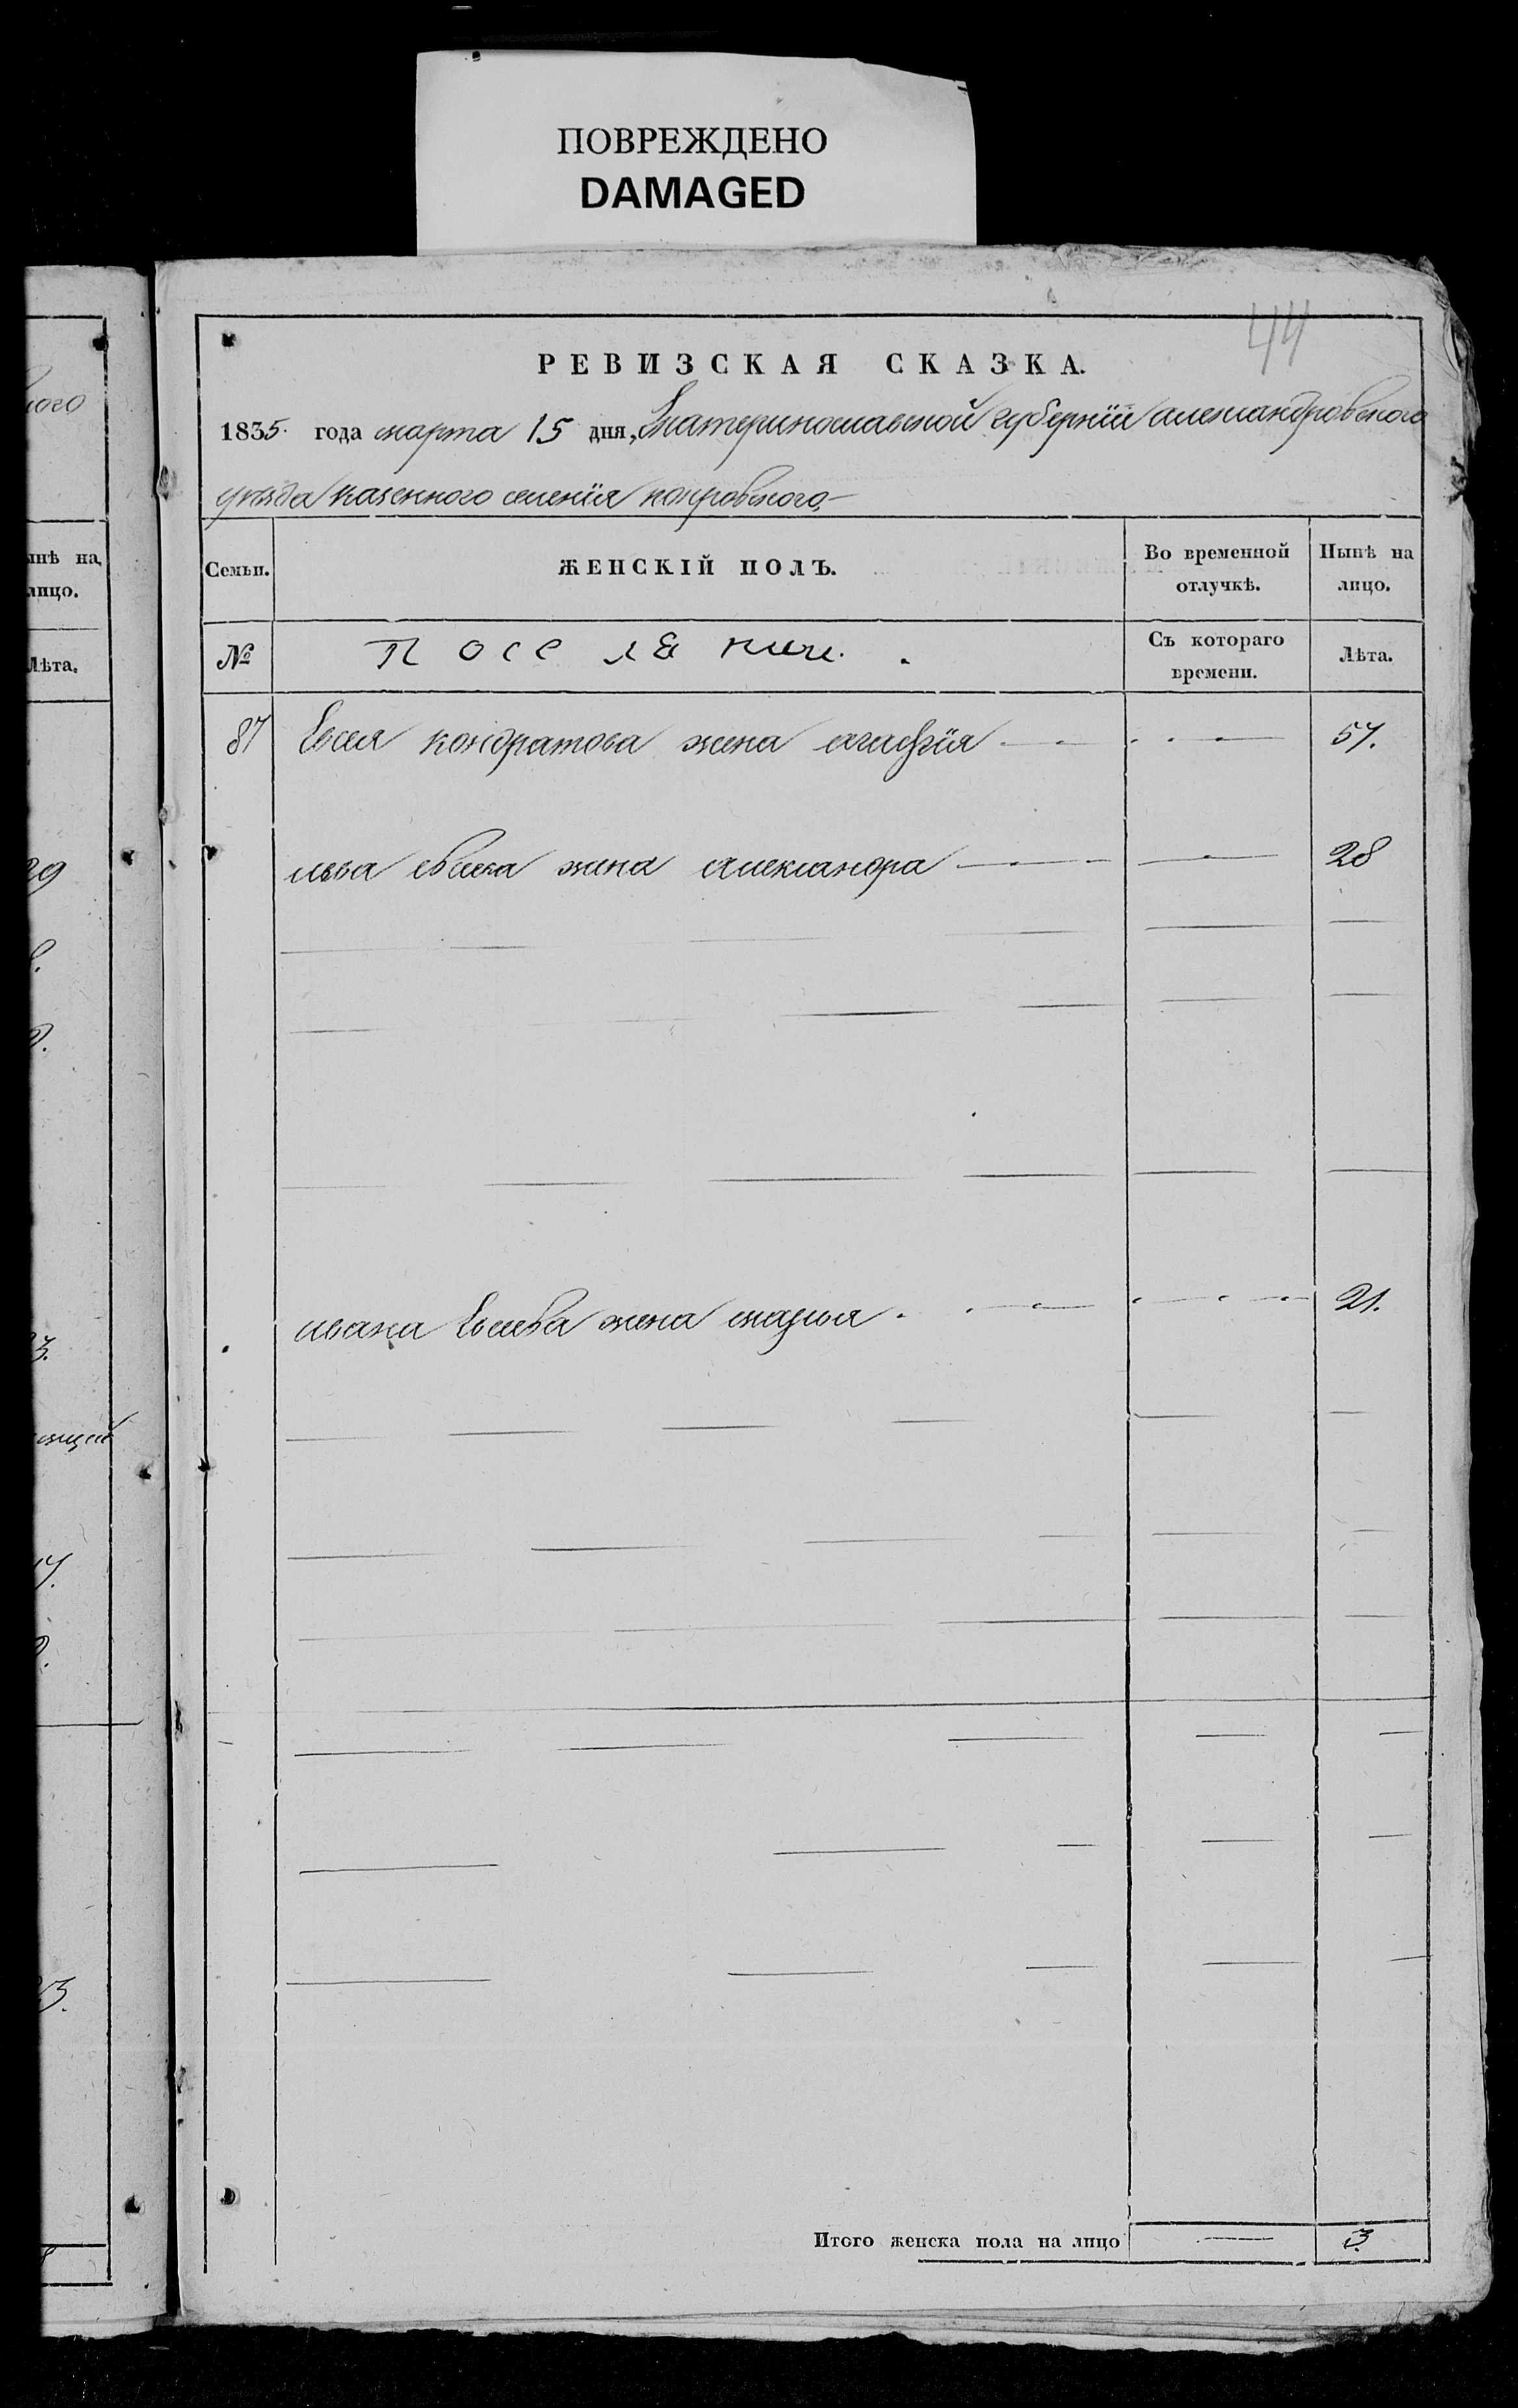 ПОВРЕЖДЕНО
DAMAGED
44
РЕВИЗСКАЯ СКАЗКА.
1835. года марта 15 дня, Екатеринославской губернїи александровского
уезда казенного селенїя покровского
Семьи.
ЖЕНСКІЙ ПОЛЪ.
Во временной отлучкѣ.
Нынѣ на лицо.
№
Съ котораго времени.
Лѣта.
87 Евсея кондратова жена агафїя 57.
жена александра 28
ивана Евсева жена марья 21.
Итого женска пола на лицо 3.
нынѣ на
лицо.
Лѣта.